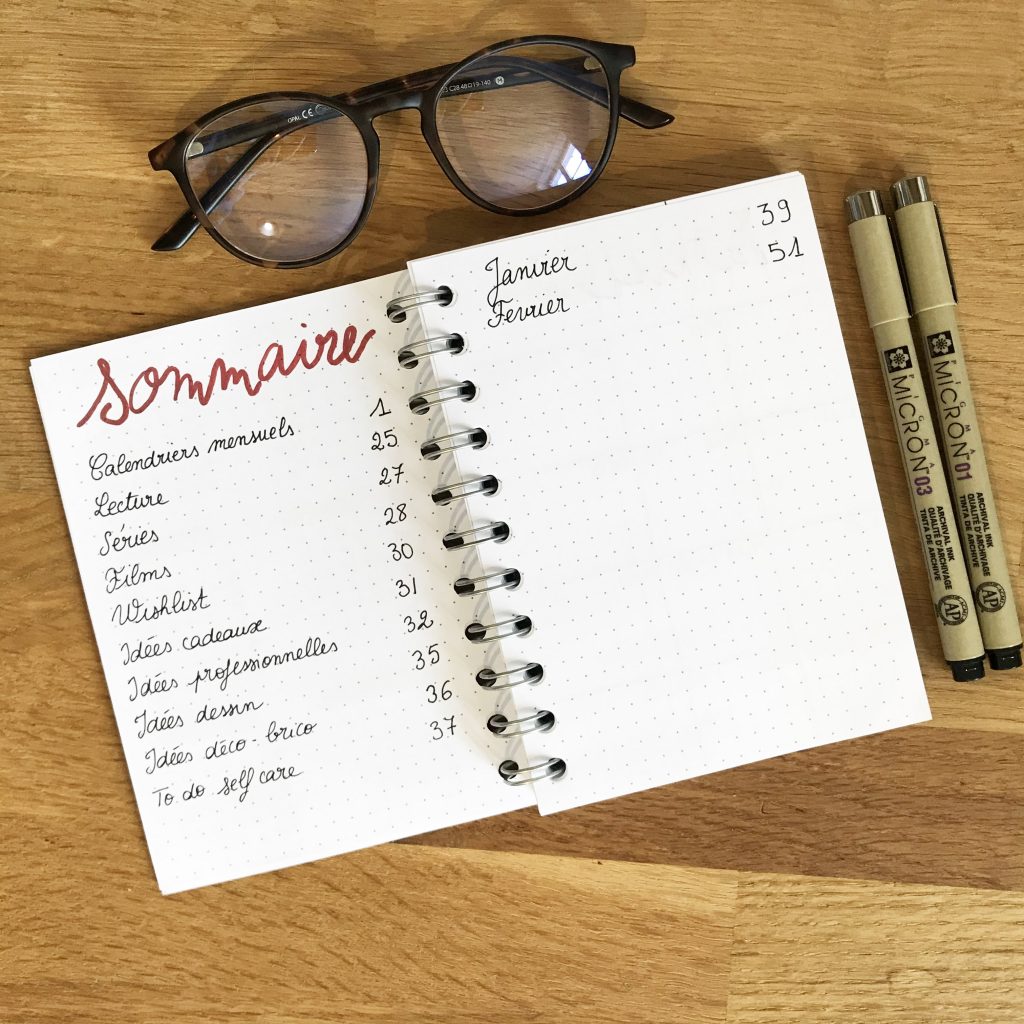 OPAL CE
C28 48□19-140 M
Sommaire
Calendriers mensuels 1
Lecture 25
Séries 27
Films 28
Wishlist 30
Idées cadeaux 31
Idées professionnelles 32
Idées dessin 35
Idées déco-brico 36
To do self care 37
Janvier 39
Fevrier 51
PIGMA
MICRON 03
ARCHIVAL INK
QUALITÉ D'ARCHIVAGE
TINTA DE ARCHIVE
AP
PIGMA
MICRON 01
ARCHIVAL INK
QUALITÉ D'ARCHIVAGE
TINTA DE ARCHIVE
AP